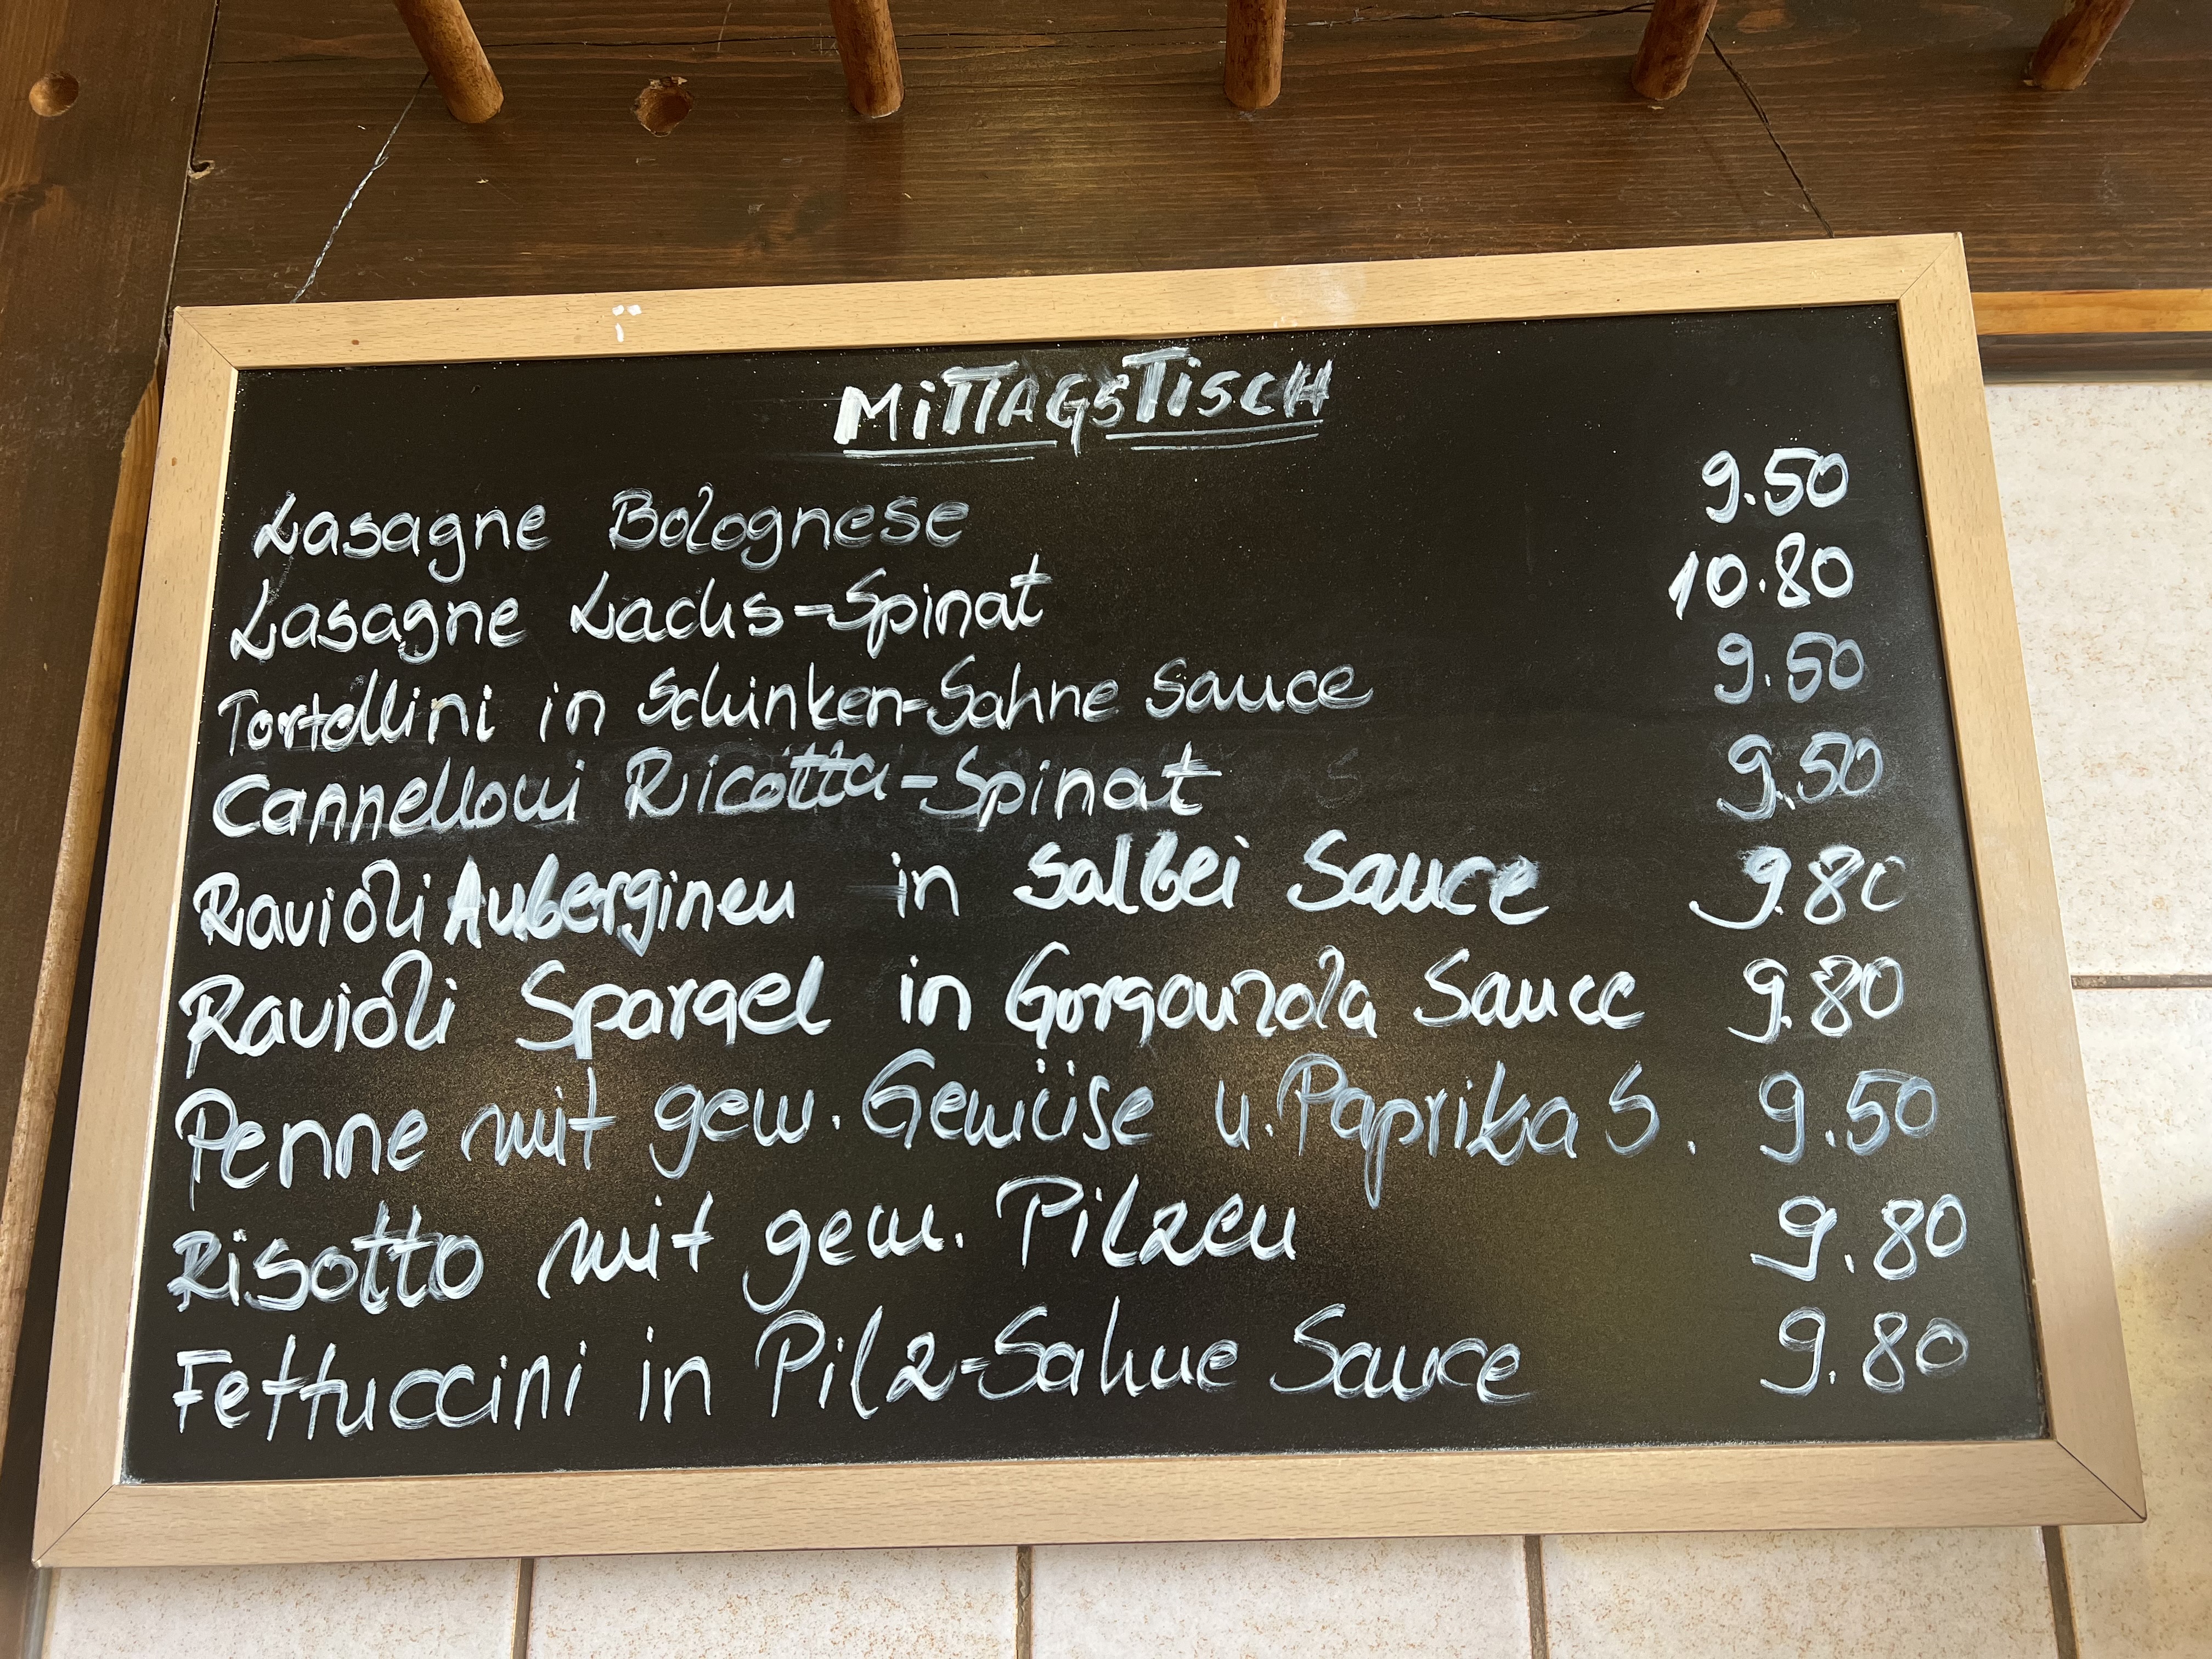 MITTAGSTISCH
Lasagne Bolognese 9.50
Lasagne Lachs-Spinat 10.80
Tortellini in Schinken-Sahne Sauce 9.50
Cannelloni Ricotta-Spinat 9.50
Ravioli Auberginen in Salbei Sauce 9.80
Ravioli Spargel in Gorgonzola Sauce 9.80
Penne mit gem. Gemüse u. Paprika S. 9.50
Risotto mit gem. Pilzen 9.80
Fettuccini in Pilz-Sahne Sauce 9.80